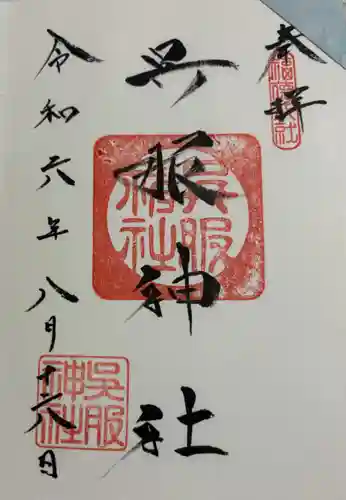 奉拝
福徳社
呉服神社
呉服神社
令和六年八月十八日
呉服神社